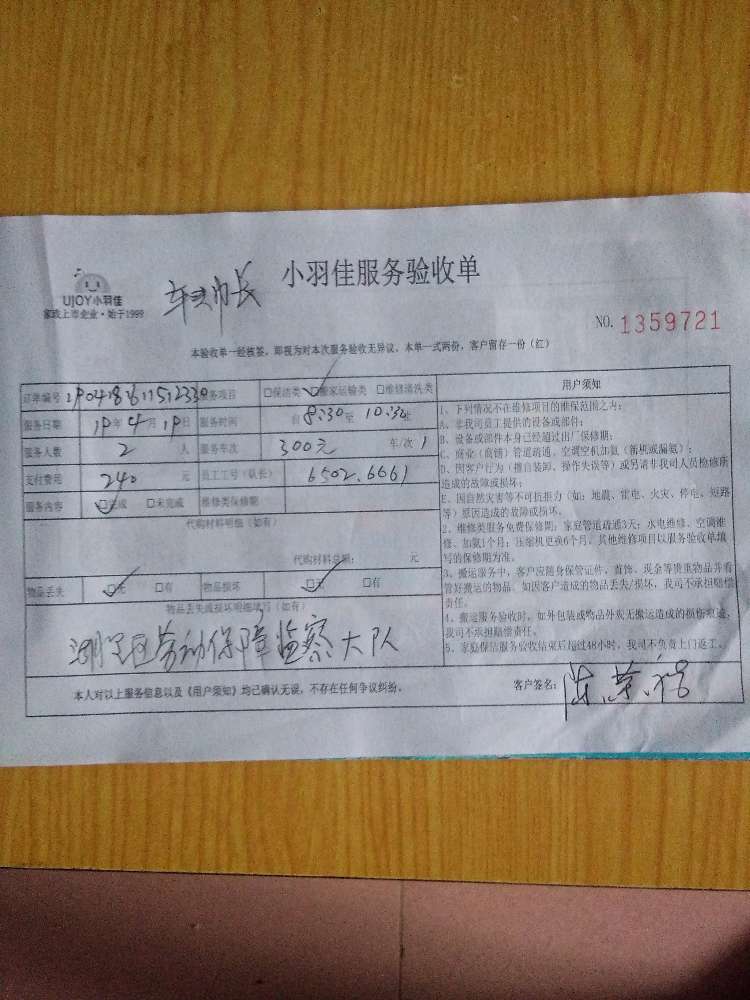 UJOY小羽佳
家政上市企业·始于1999
小羽佳服务验收单
NO. 1359721
本验收单一经核签，即视为对本次服务验收无异议，本单一式两份，客户留存一份（红）
订单编号 服务项目 □保洁类 □搬家运输类 □维修清洗类
服务日期 19年4月19日 服务时间 自8:30至10:30止
服务人数 2 人 服务车次 300元 车/次 1
支付费用 240 元 员工工号（队长） 6502.6661
服务内容 □完成 □未完成 维修类保修期
代购材料明细（如有）
代购材料总额： 元
物品丢失 □无 □有 物品损坏 □无 □有
物品丢失或损坏明细填写（如有）
湖里区劳动保障监察大队
本人对以上服务信息以及《用户须知》均已确认无误，不存在任何争议纠纷。
客户签名：
用户须知
1、下列情况不在维修项目的维保范围之内：
A、非我司员工提供的设备或部件；
B、设备或部件本身已经超过出厂保修期；
C、商业（商铺）管道疏通、空调空机加氨（新机或漏氨）；
D、因客户行为（擅自装卸、操作失误等）或另请非我司人员检修所
造成的故障或损坏；
E、因自然灾害等不可抗力（如：地震、雷电、火灾、停电、短路
等）原因造成的故障或损坏。
2、维修类服务免费保修期：家庭管道疏通3天；水电维修、空调维
修、加氨1个月；压缩机更换6个月。其他维修项目以服务验收单填
写的保修期为准。
3、搬运服务中，客户应随身保管证件、首饰、现金等贵重物品并看
管好搬运的物品。如因客户造成的物品丢失/损坏，我司不承担赔偿
责任。
4、搬运服务验收时，如外包装或物品外观无搬运造成的损伤痕迹，
我司不承担赔偿责任。
5、家庭保洁服务验收结束后超过48小时，我司不负责上门返工。